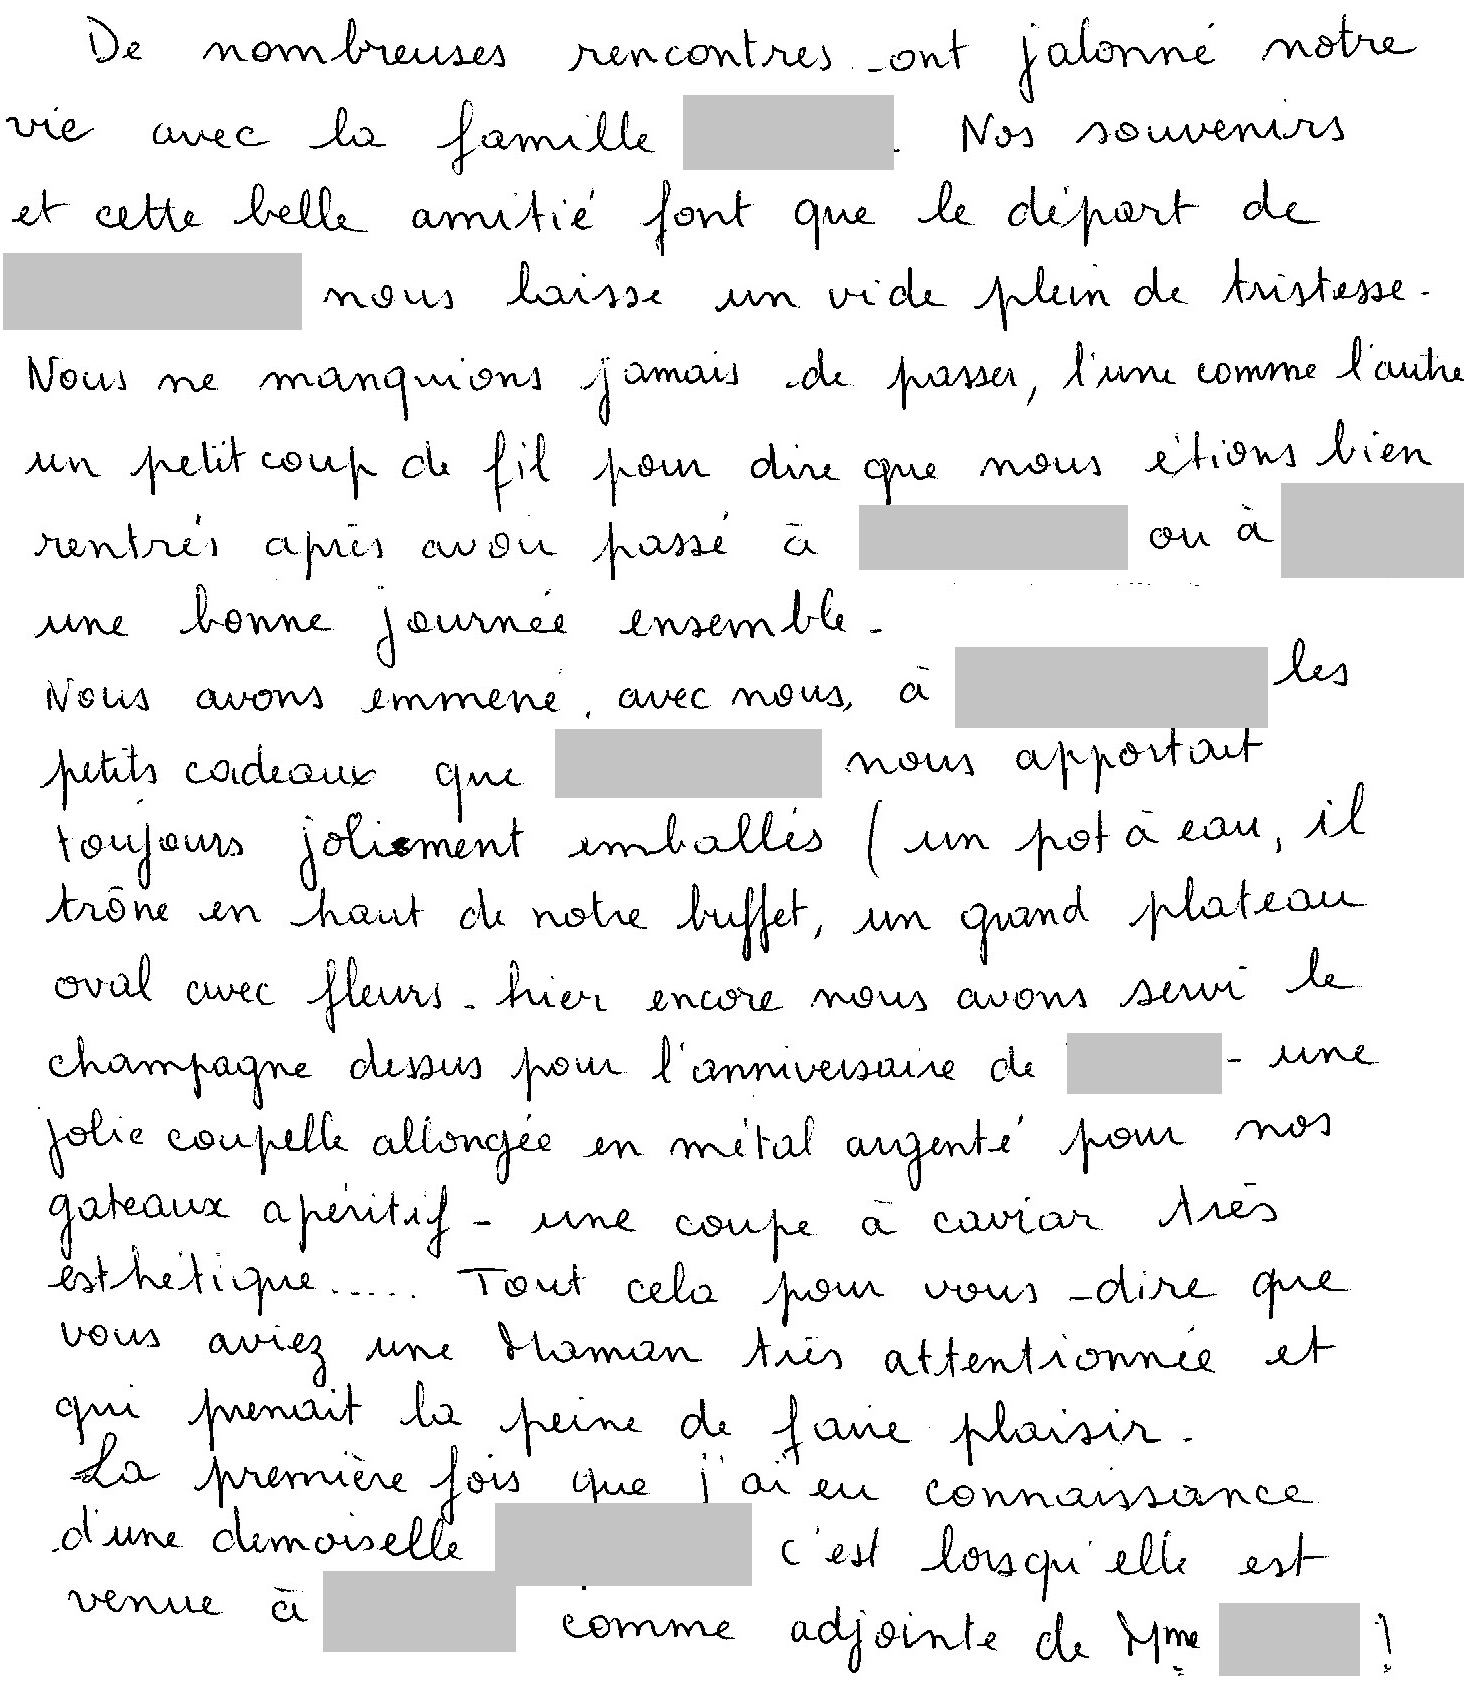 De nombreuses rencontres ont jalonné notre
vie avec la famille . Nos souvenirs
et cette belle amitié font que le départ de
nous laisse un vide plein de tristesse.
Nous ne manquions jamais de passer, l'une comme l'autre
un petit coup de fil pour dire que nous étions bien
rentrés après avoir passé à ou à
une bonne journée ensemble.
Nous avons emmené, avec nous, à les
petits cadeaux que nous apportait
toujours joliement emballés (un pot à eau, il
trône en haut de notre buffet, un grand plateau
oval avec fleurs - hier encore nous avons servi le
champagne dessus pour l'anniversaire de - une
jolie coupelle allongée en métal argenté pour nos
gateaux apéritif - une coupe à caviar très
esthétique..... Tout cela pour vous dire que
vous aviez une Maman très attentionnée et
qui prenait la peine de faire plaisir.
La première fois que j'ai eu connaissance
d'une demoiselle c'est lorsqu'elle est
venue à comme adjointe de Mme !